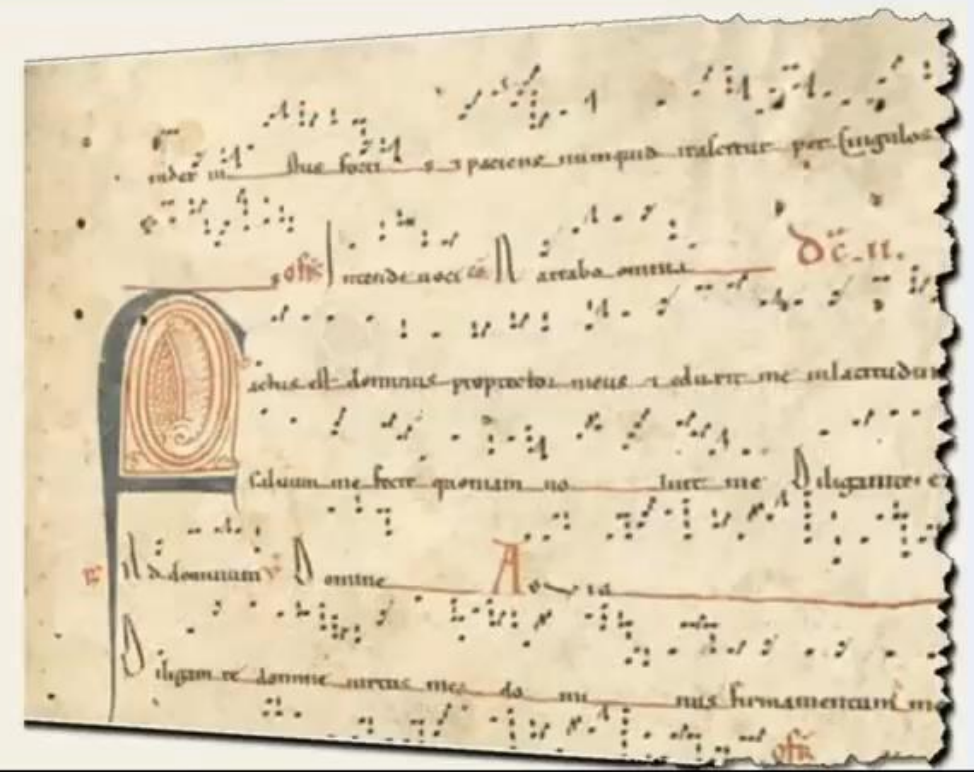 iudex iu stus forti s ⁊ paciens numquid irascetur per singulos
Intende uoci Narrabo omnia Dc. II.
Factus est dominus protector meus ⁊ eduxit me
saluum me fecit quoniam uo luit me Diligam te
Ad dominum Domine A
Diligam te domine uirtus mea do mi nus firmamentum